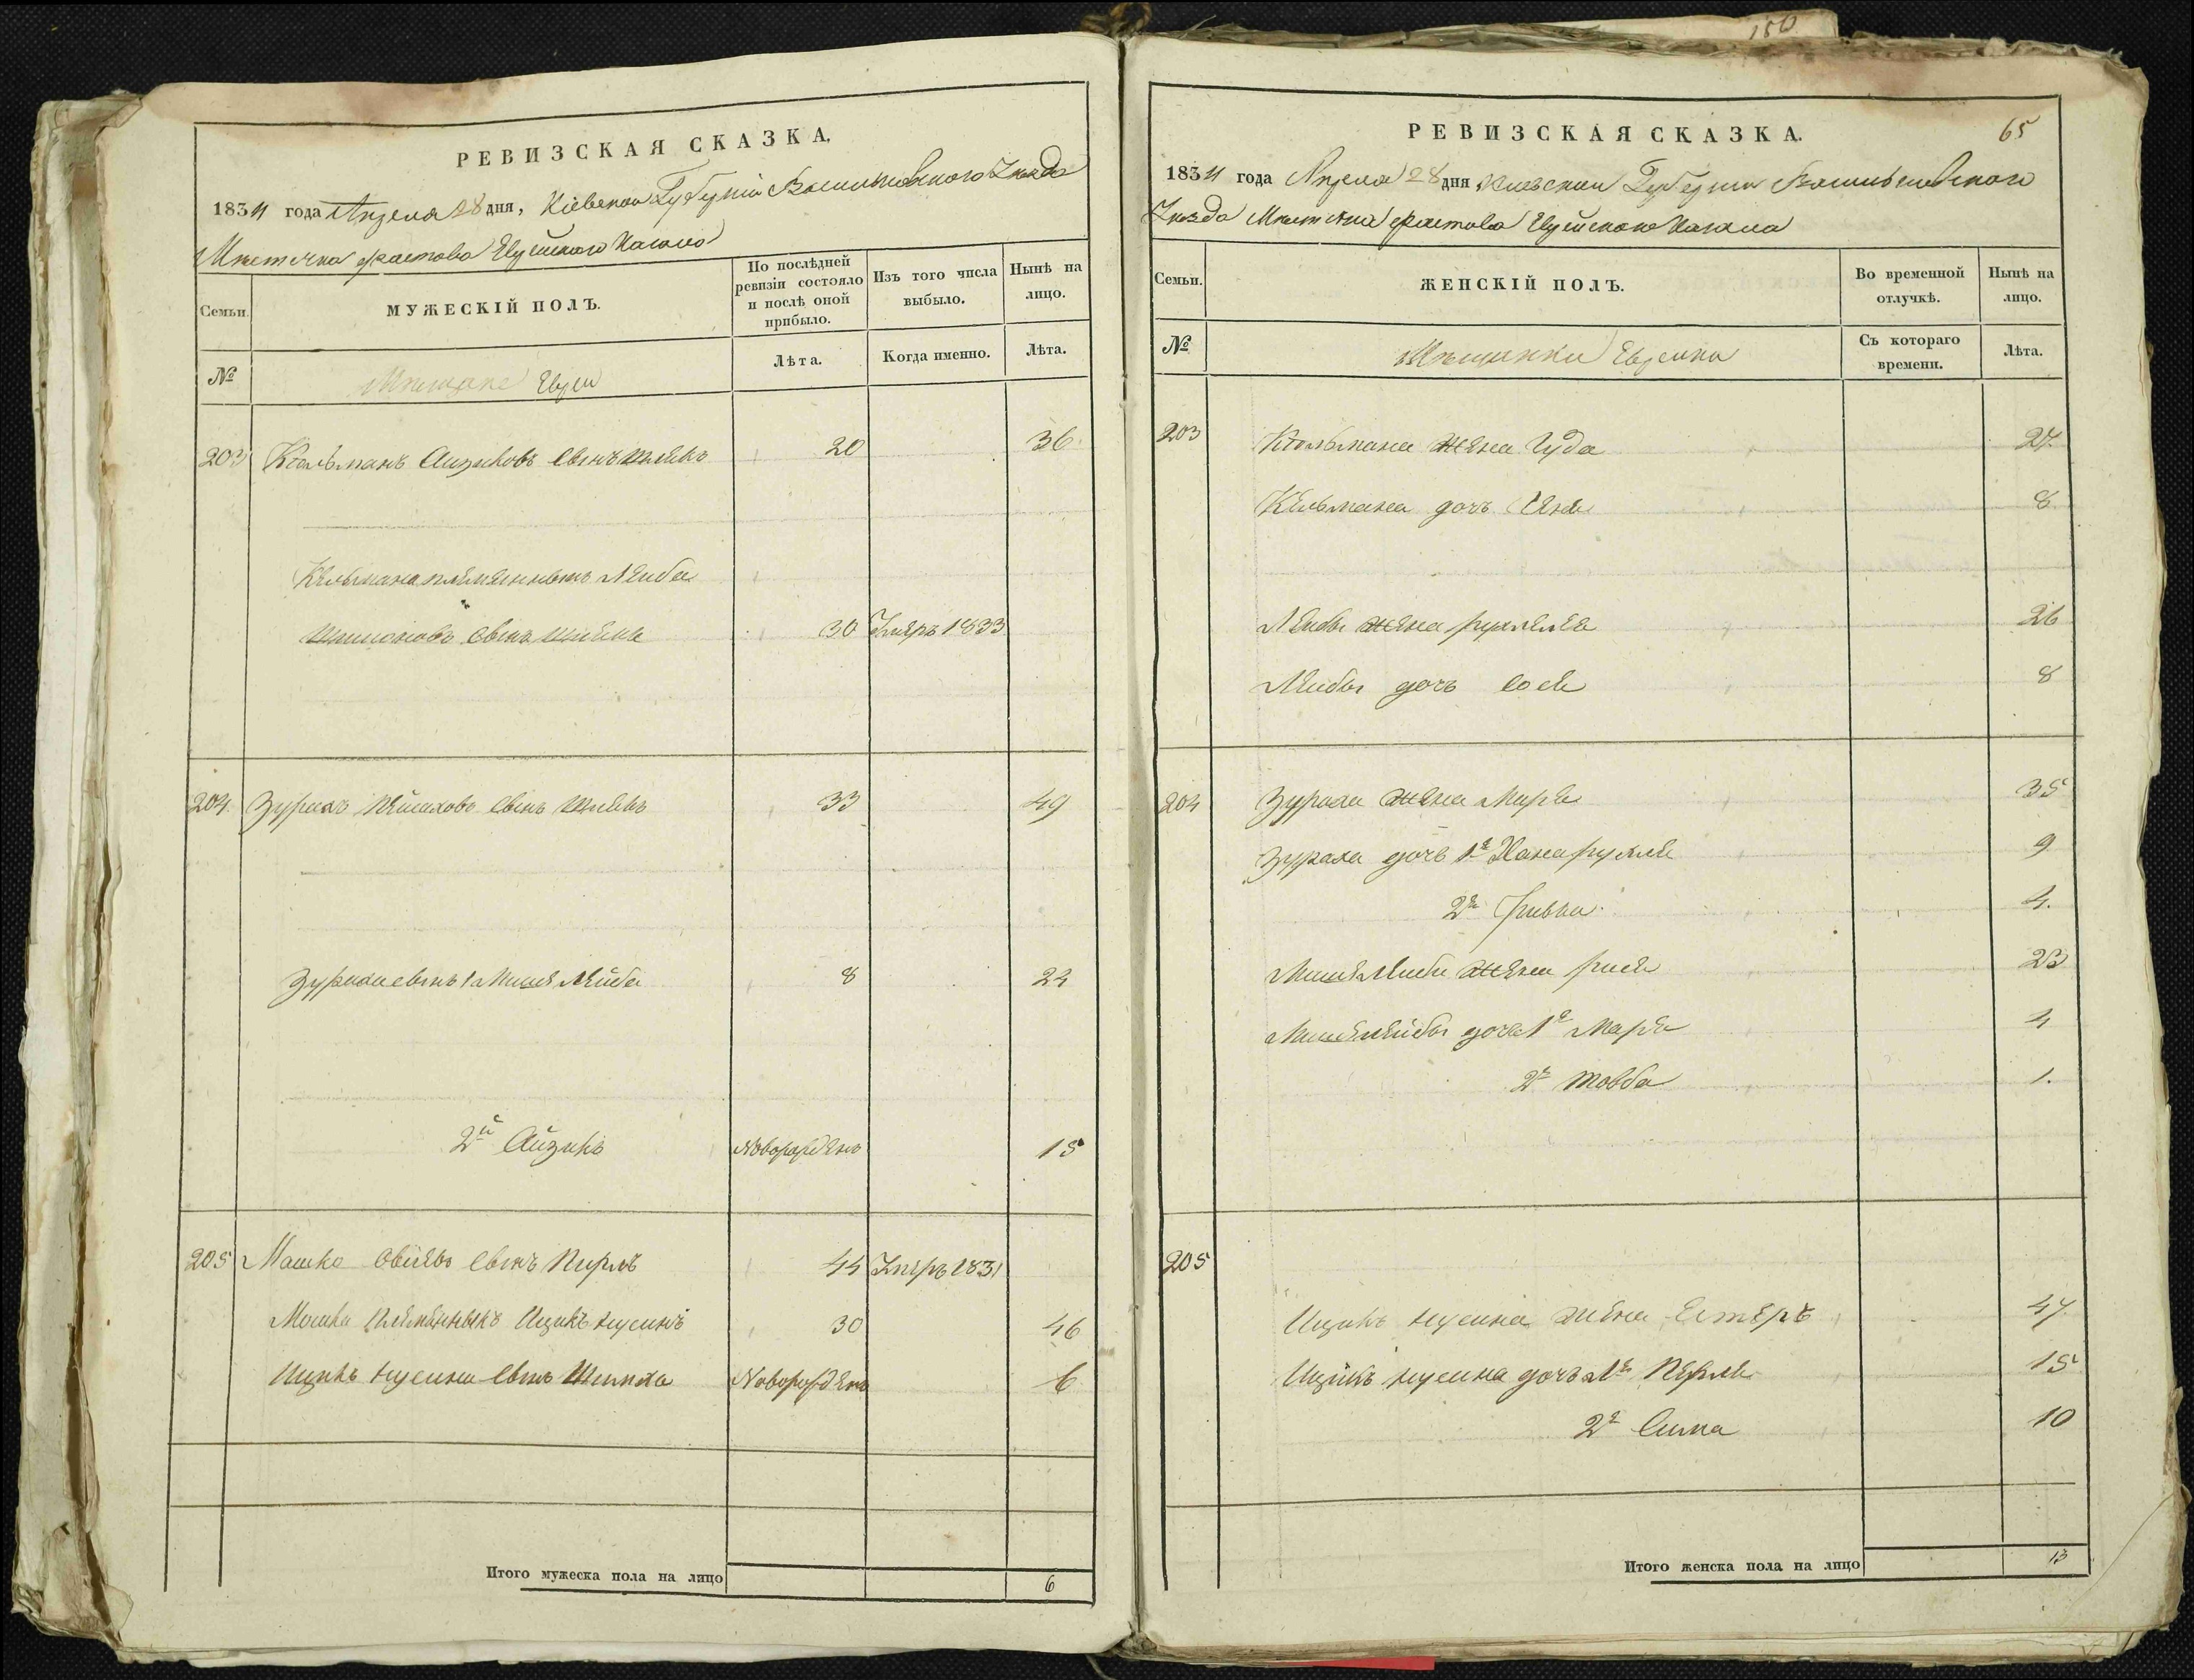 186
РЕВИЗСКАЯ СКАЗКА.
1834 года Апреля 28 дня, Кіевской Губерніи Васильковского Уезда
Мѣстечка Фастова Еврейского Кагала
Семьи.
МУЖЕСКІЙ ПОЛЪ.
По послѣдней ревизіи состояло и послѣ оной прибыло.
Изъ того числа выбыло.
Нынѣ на лицо.
№
Мѣщане Евреи
Лѣта.
Когда именно.
Лѣта.
203 Кельманъ Айзиковъ сынъ 20 36
Кельмана племянныкъ Лейба
сынъ 30 Умеръ 1833
204 Зурахъ Пейсаховъ сынъ 33 49
Зураха сынъ 1 Мошь Лейба 8 24
2й Айзикъ Новорожденъ 15
205 Мошко Овсіевъ сынъ Пирлъ 44 Умеръ 1831
Мошка племянныкъ Ицикъ Нусинъ 30 46
Ицикъ Нусина сынъ Шимха Новорожденъ 6
Итого мужеска пола на лицо 6
РЕВИЗСКАЯ СКАЗКА. 65
1834 года Апреля 28 дня Киевской Губернии Васильковского
Уезда Мѣстечка Фастова Еврейского Кагала
Семьи.
ЖЕНСКІЙ ПОЛЪ.
Во временной отлучкѣ.
Нынѣ на лицо.
№
Мѣщанки Еврейки
Съ котораго времени.
Лѣта.
203 Кельмана жена Гуда 27.
Кельмана дочь 8
Лейбы жена Рухлея 26
Лейбы дочь Сося 8
204 Зураха жена Мирля 35
Зураха дочь 1я Хана Рухля 9
2я Ривка 4.
Мошь Лейбы жена Рися 23
Мошь Лейбы дочь 1я Маря 4
2я Товба 1.
205
Ицикъ Нусина жена Естеръ 47.
Ицикъ Нусина дочь 1я Перля 15
2я Сима 10
Итого женска пола на лицо 13